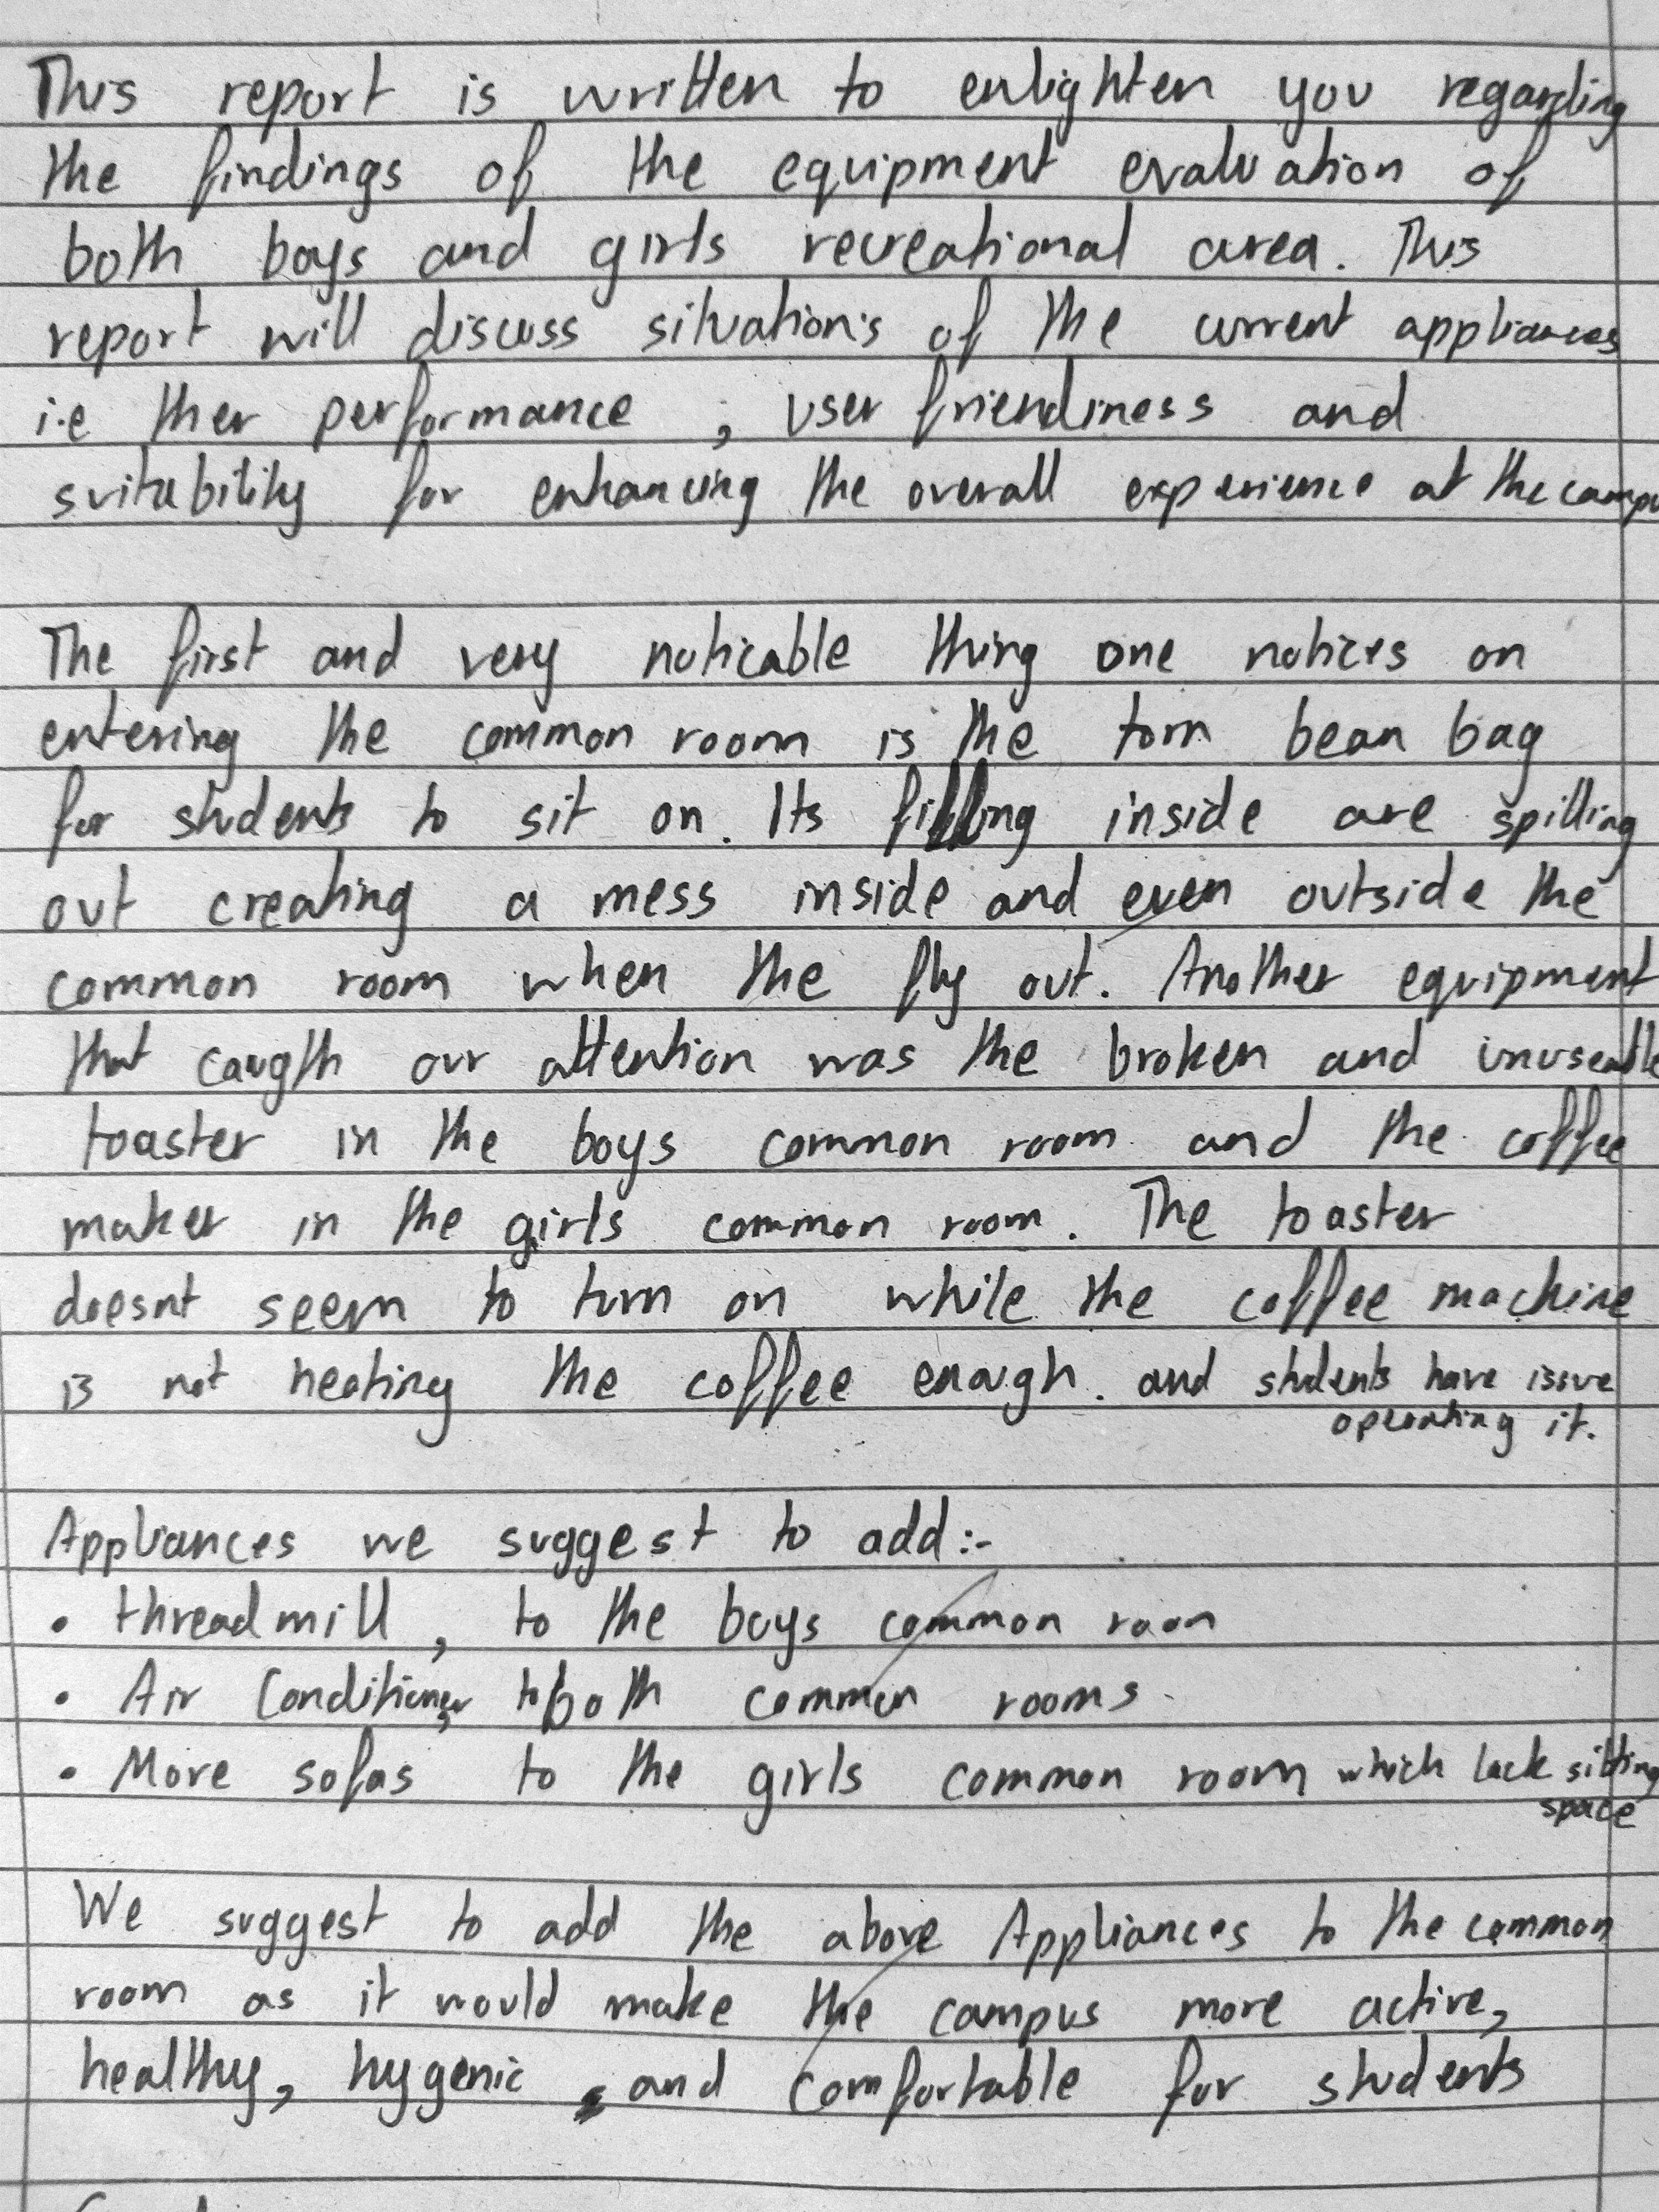 This report is written to enlighten you regarding
the findings of the equipment evaluation of
both boys and girls recreational area. This
report will discuss situations of the current appliances
i.e ther performance , user friendliness and
suitability for enhancing the overall experience at the campu
The first and very noticable thing one notices on
entering the common room is the torn bean bag
for students to sit on. Its filling inside are spilling
out creating a mess inside and even outside the
common room when the fly out. Another equipment
that caugth our attention was the broken and unuseable
toaster in the boys common room and the coffee
maker in the girls common room. The toaster
doesnt seem to turn on while the coffee machine
is not heating the coffee enough. and students have issue
operating it.
Appliances we suggest to add:-
• threadmill, to the boys common room
• Air Conditioner, to both common rooms.
• More sofas to the girls common room which lack sitting
space
We suggest to add the above Appliances to the common
room as it would make the campus more active,
healthy, hygenic, and comfortable for students